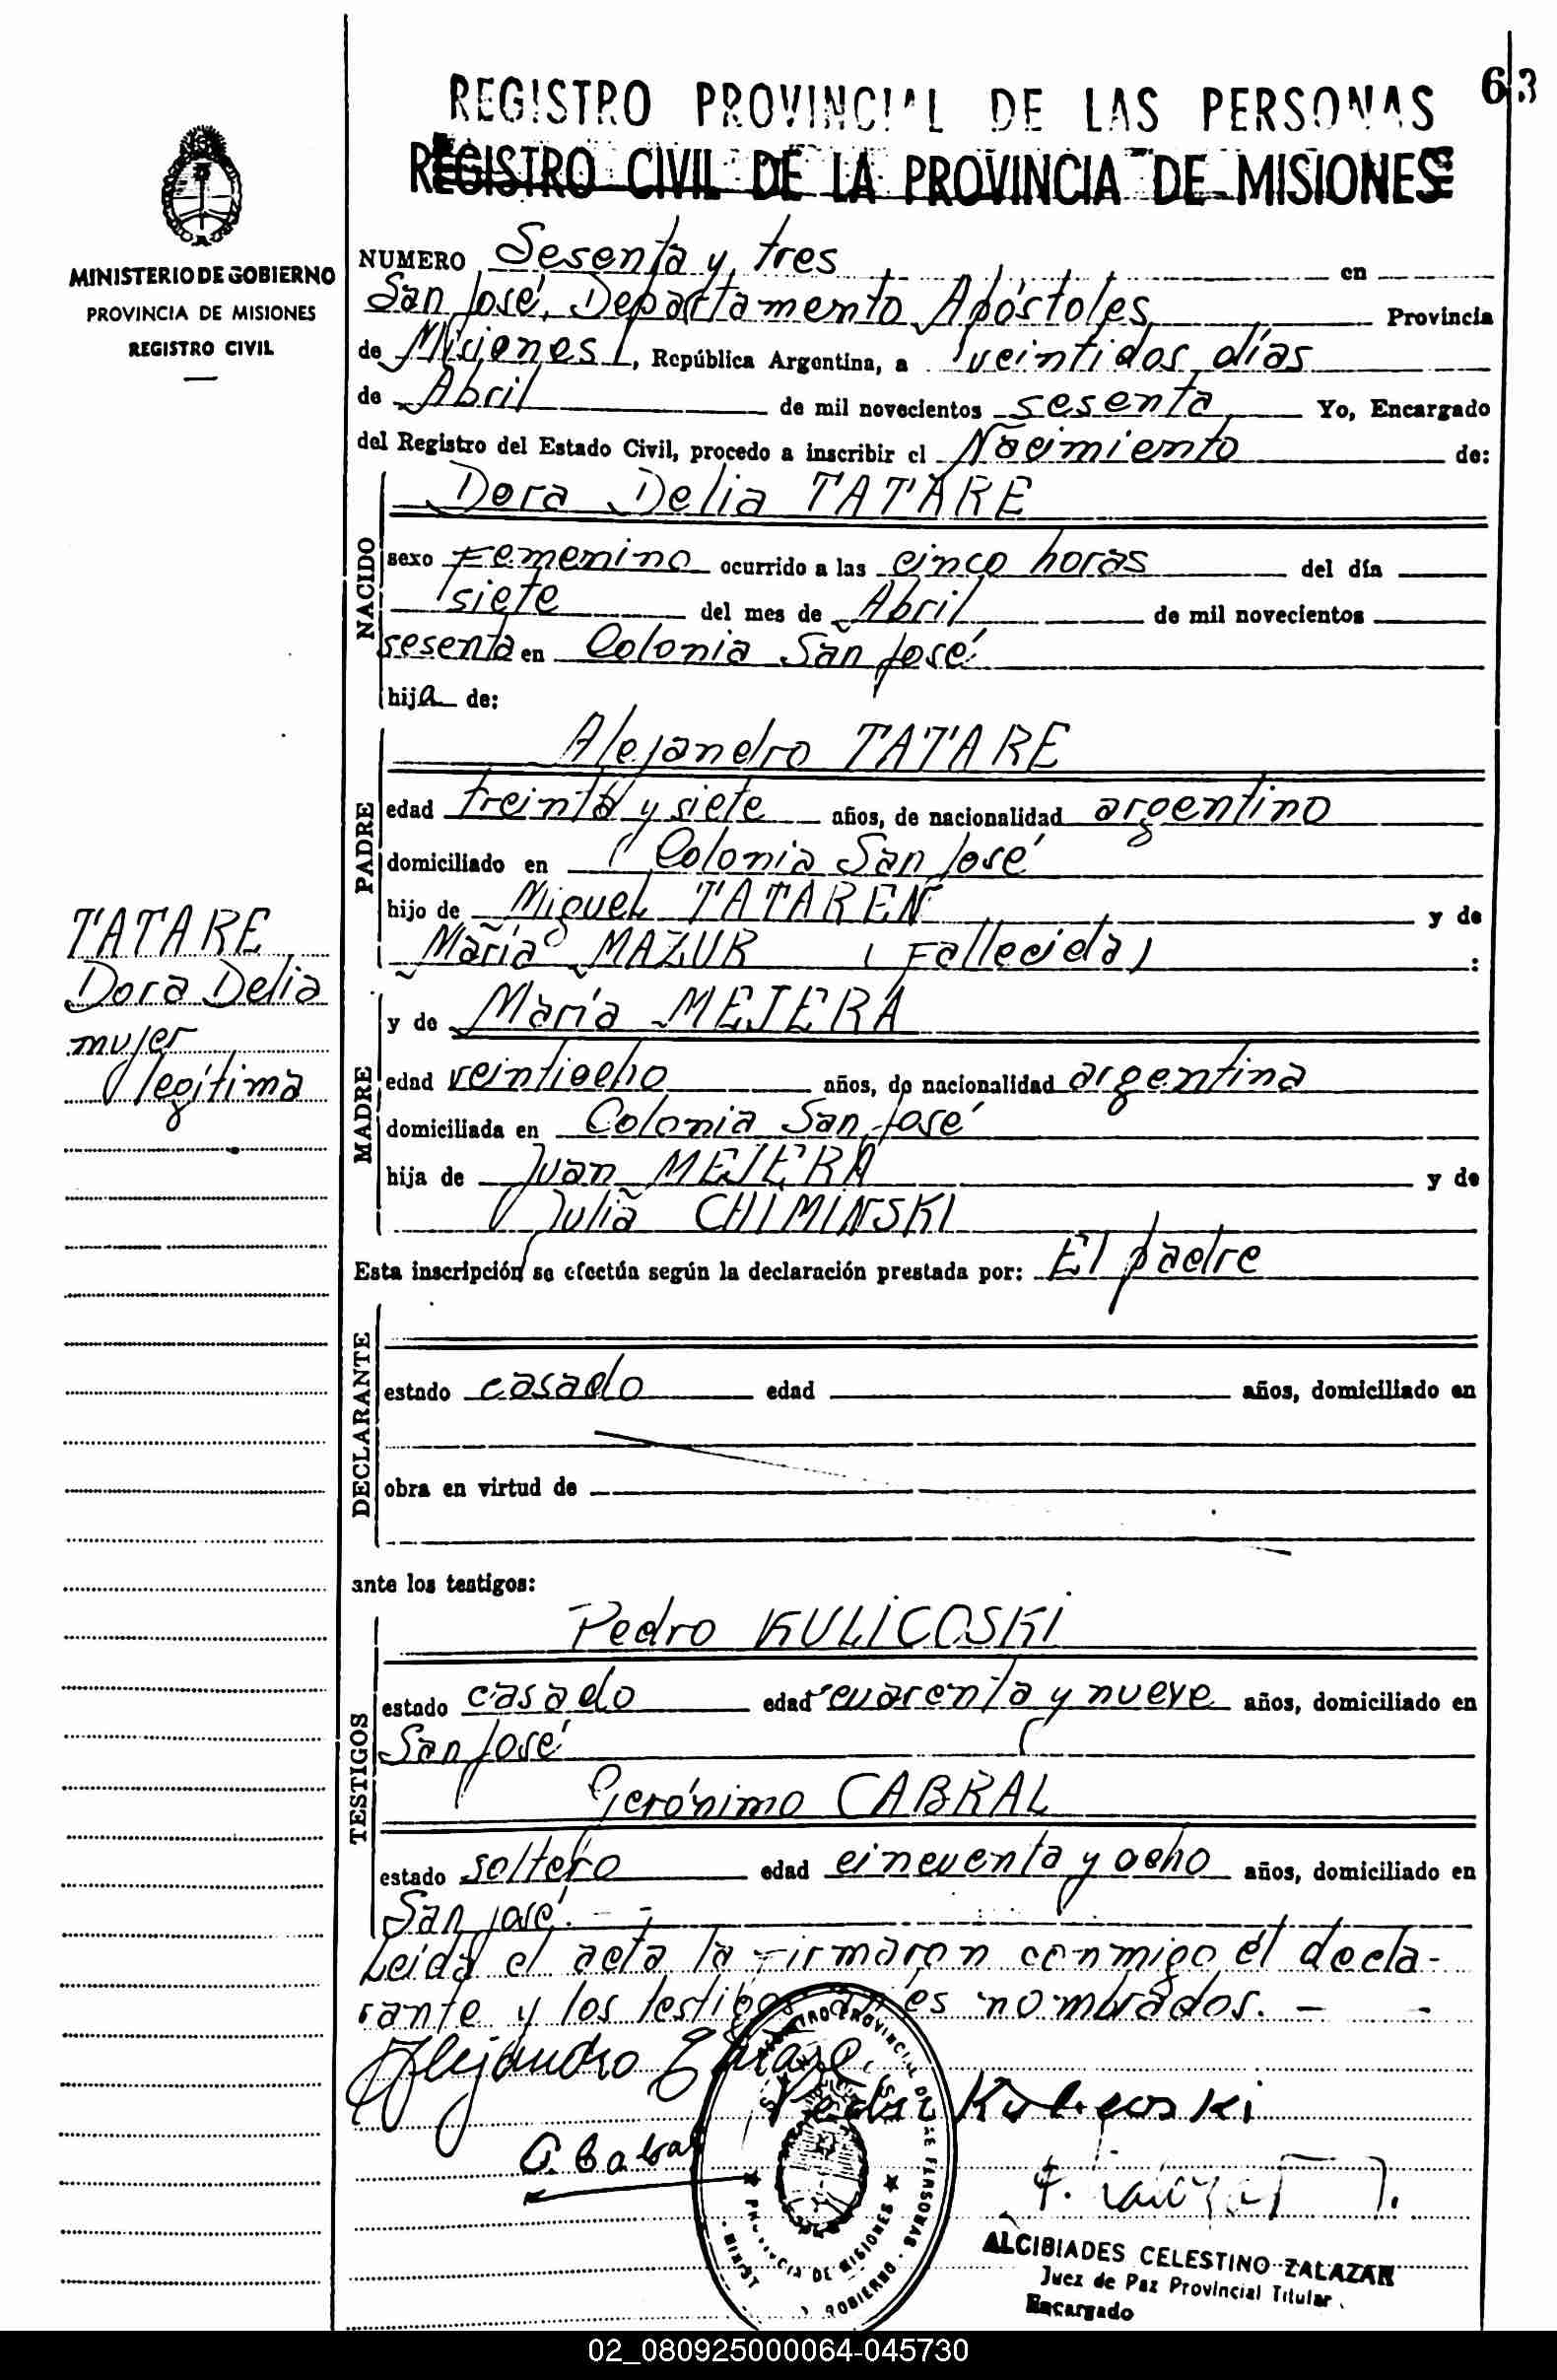 63
REGISTRO PROVINCIAL DE LAS PERSONAS
REGISTRO CIVIL DE LA PROVINCIA DE MISIONES
MINISTERIO DE GOBIERNO
PROVINCIA DE MISIONES
REGISTRO CIVIL
NUMERO Sesenta y tres en
San José, Departamento Apóstoles Provincia
de Misiones, República Argentina, a veintidos días
de Abril de mil novecientos sesenta Yo, Encargado
del Registro del Estado Civil, procedo a inscribir el Nacimiento de:
NACIDO
Dora Delia TATARE
sexo Femenino ocurrido a las cinco horas del día
siete del mes de Abril de mil novecientos
sesenta en Colonia San José
hija de:
PADRE
Alejandro TATARE
edad treinta y siete años, de nacionalidad argentino
domiciliado en Colonia San José
hijo de Miguel TATAREN y de
María MAZUR (Fallecida) :
TATARE
Dora Delia
mujer
legítima
MADRE
y de María MEJERA
edad veintiocho años, de nacionalidad argentina
domiciliada en Colonia San José
hija de Juan MEJERA y de
Julia CHIMINSKI
Esta inscripción se efectúa según la declaración prestada por: El padre
DECLARANTE
estado casado edad años, domiciliado en
obra en virtud de
ante los testigos:
TESTIGOS
Pedro KULICOSKI
estado casado edad cuarenta y nueve años, domiciliado en
San José
Gerónimo CABRAL
estado soltero edad cincuenta y ocho años, domiciliado en
San José.
Leída el acta la firmaron conmigo él decla-
rante y los testigos antes nombrados.
Alejandro
Pedro Kuligoski
G. Cabral
ALCIBIADES CELESTINO ZALAZAR
Juez de Paz Provincial Titular
Encargado
REGISTRO PROVINCIAL DE LAS PERSONAS
PROVINCIA DE MISIONES
02_080925000064-045730